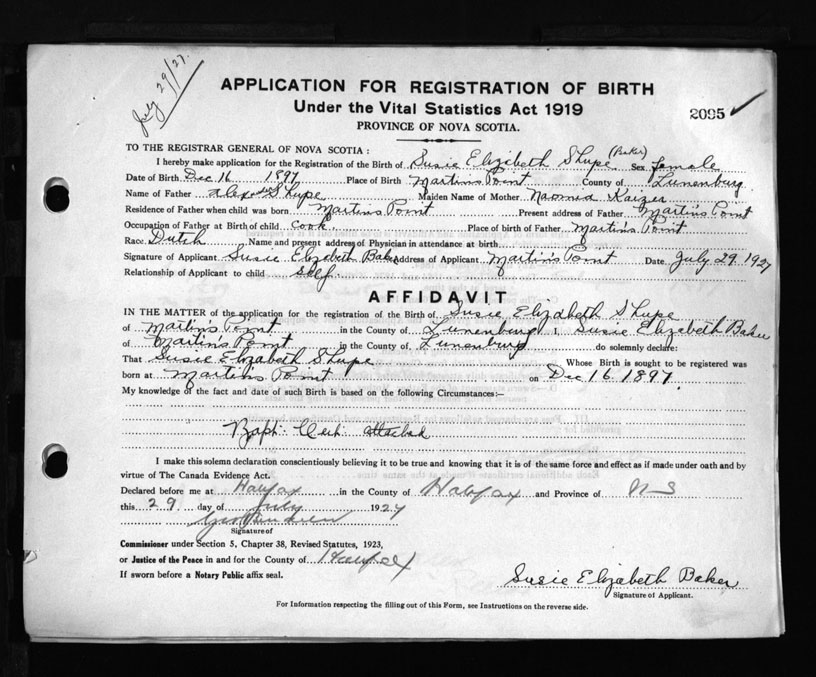 July 29/27.
APPLICATION FOR REGISTRATION OF BIRTH
Under the Vital Statistics Act 1919
2095
PROVINCE OF NOVA SCOTIA.
TO THE REGISTRAR GENERAL OF NOVA SCOTIA :
I hereby make application for the Registration of the Birth of Susie Elizibeth Shupe (Baker) Sex female
Date of Birth Dec 16 1897 Place of Birth Martins Point County of Lunenburg
Name of Father Shupe Maiden Name of Mother Kaizer
Residence of Father when child was born Martins Point Present address of Father Martin's Point
Occupation of Father at Birth of child Cook Place of birth of Father Martin's Point
Race Dutch Name and present address of Physician in attendance at birth
Signature of Applicant Susie Elizabeth Baker Address of Applicant Martin's Point Date July 29. 1927
Relationship of Applicant to child self.
AFFIDAVIT
IN THE MATTER of the application for the registration of the Birth of Susie Elizabeth Shupe
of Martins Point in the County of Lunenburg I, Susie Elizabeth Baker
of Martins Point in the County of Lunenburg do solemnly declare:
That Susie Elizabeth Shupe Whose Birth is sought to be registered was
born at Martin's Point on Dec 16. 1897.
My knowledge of the fact and date of such Birth is based on the following Circumstances:—
Bapt. Cert. attached
I make this solemn declaration conscientiously believing it to be true and knowing that it is of the same force and effect as if made under oath and by
virtue of The Canada Evidence Act.
Declared before me at Halifax in the County of Halifax and Province of N S
this 29 day of July 1927
Signature of
Commissioner under Section 5, Chapter 38, Revised Statutes, 1923,
or Justice of the Peace in and for the County of Halifax
If sworn before a Notary Public affix seal.
Susie Elizabeth Baker
Signature of Applicant.
For Information respecting the filling out of this Form, see Instructions on the reverse side.